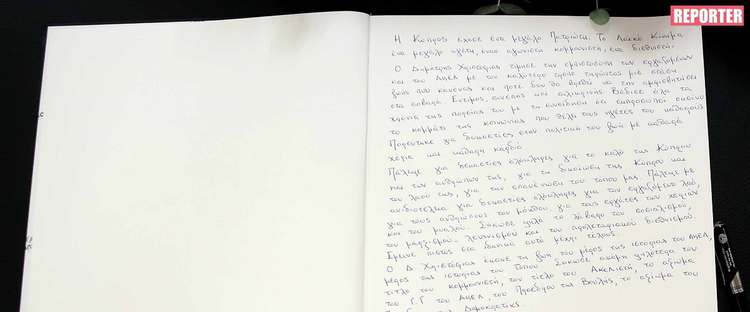 REPORTER
Η Κύπρος έχασε ένα μεγάλο Πατριώτη. Το Λαϊκό Κίνημα
ένα μεγάλο ηγέτη, έναν αγωνιστή κομμουνιστή, ένα διεθνιστή.
Ο Δημήτρης Χριστόφιας τίμησε την εμπιστοσύνη των εργαζομένων
και του ΑΚΕΛ με τον καλύτερο τρόπο τηρώντας μια στάση
ζωής που κανένας και ποτέ δεν θα βρεθεί να την αμφισβητήσει
στα σοβαρά. Έντιμος, συνεπής και ειλικρινής. Βάδισε όλα τα
χρόνια της πορείας του με τη συνείδηση ότι εκπροσωπεί εκείνο
το κομμάτι της κοινωνίας που θέλει τους ηγέτες του καθαρούς
Πορεύτηκε για δεκαετίες στον πολιτική του ζωή με καθαρά
χέρια και καθαρή καρδιά
Πάλεψε για δεκαετίες ολόκληρες για το καλό της Κύπρου
και των ανθρώπων της, για τη δικαίωση της Κύπρου και
του λαού της, για την επανένωση του τόπου μας. Πάλεψε με
ανιδιοτέλεια για δεκαετίες ολόκληρες για τον εργαζόμενο λαό,
για τους ανθρώπους του μόχθου, για τους εργάτες των χεριών
και του μυαλού. Σήκωσε ψηλά το λάβαρο του σοσιαλισμού,
του μαρξισμού - λενινισμού και του προλεταριακού διεθνισμού.
Έμεινε πιστός στα ιδανικά αυτά μέχρι τέλους.
Ο Δ. Χριστόφιας έκανε τη ζωή του μέρος της ιστορίας του ΑΚΕΛ,
μέρος της ιστορίας του τόπου. Σήκωσε ακόμη ψηλότερα τον
τίτλο του κομμουνιστή, τον τίτλο του Ακελιστή, το αξίωμα
του Γ.Γ του ΑΚΕΛ, του Προέδρου της Βουλής, το αξίωμα του
της Δημοκρατίας.